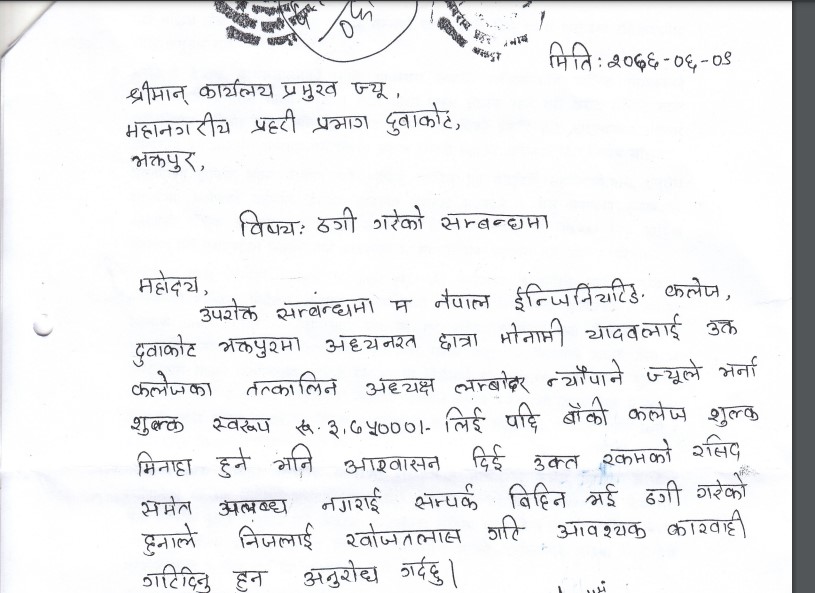 मिति: २०६६-०६-०९
श्रीमान् कार्यलय प्रमुख ज्यू,
महानगरीय प्रहरी प्रभाग दुवाकोट,
भक्तपुर,
विषय: ठगी गरेको सम्बन्धमा
महोदय,
उपरोक्त सम्बन्धमा म नेपाल ईन्जिनियरिङ कलेज,
दुवाकोट भक्तपुरमा अध्यनरत छात्रा मोनामी यादवलाई उक्त
कलेजका तत्कालिन अध्यक्ष लम्बोदर न्यौपाने ज्यूले भर्ना
शुल्क स्वरूप रू. ३,७५०००।- लिई पछि बाँकी कलेज शुल्क
मिनाहा हुने भनि आश्वासन दिई उक्त रकमको रसिद
समेत उपलब्ध नगराई सम्पर्क बिहिन भई ठगी गरेको
हुनाले निजलाई खोजतलास गरि आवश्यक कारवाही
गरिदिनु हुन अनुरोध गर्दछु।